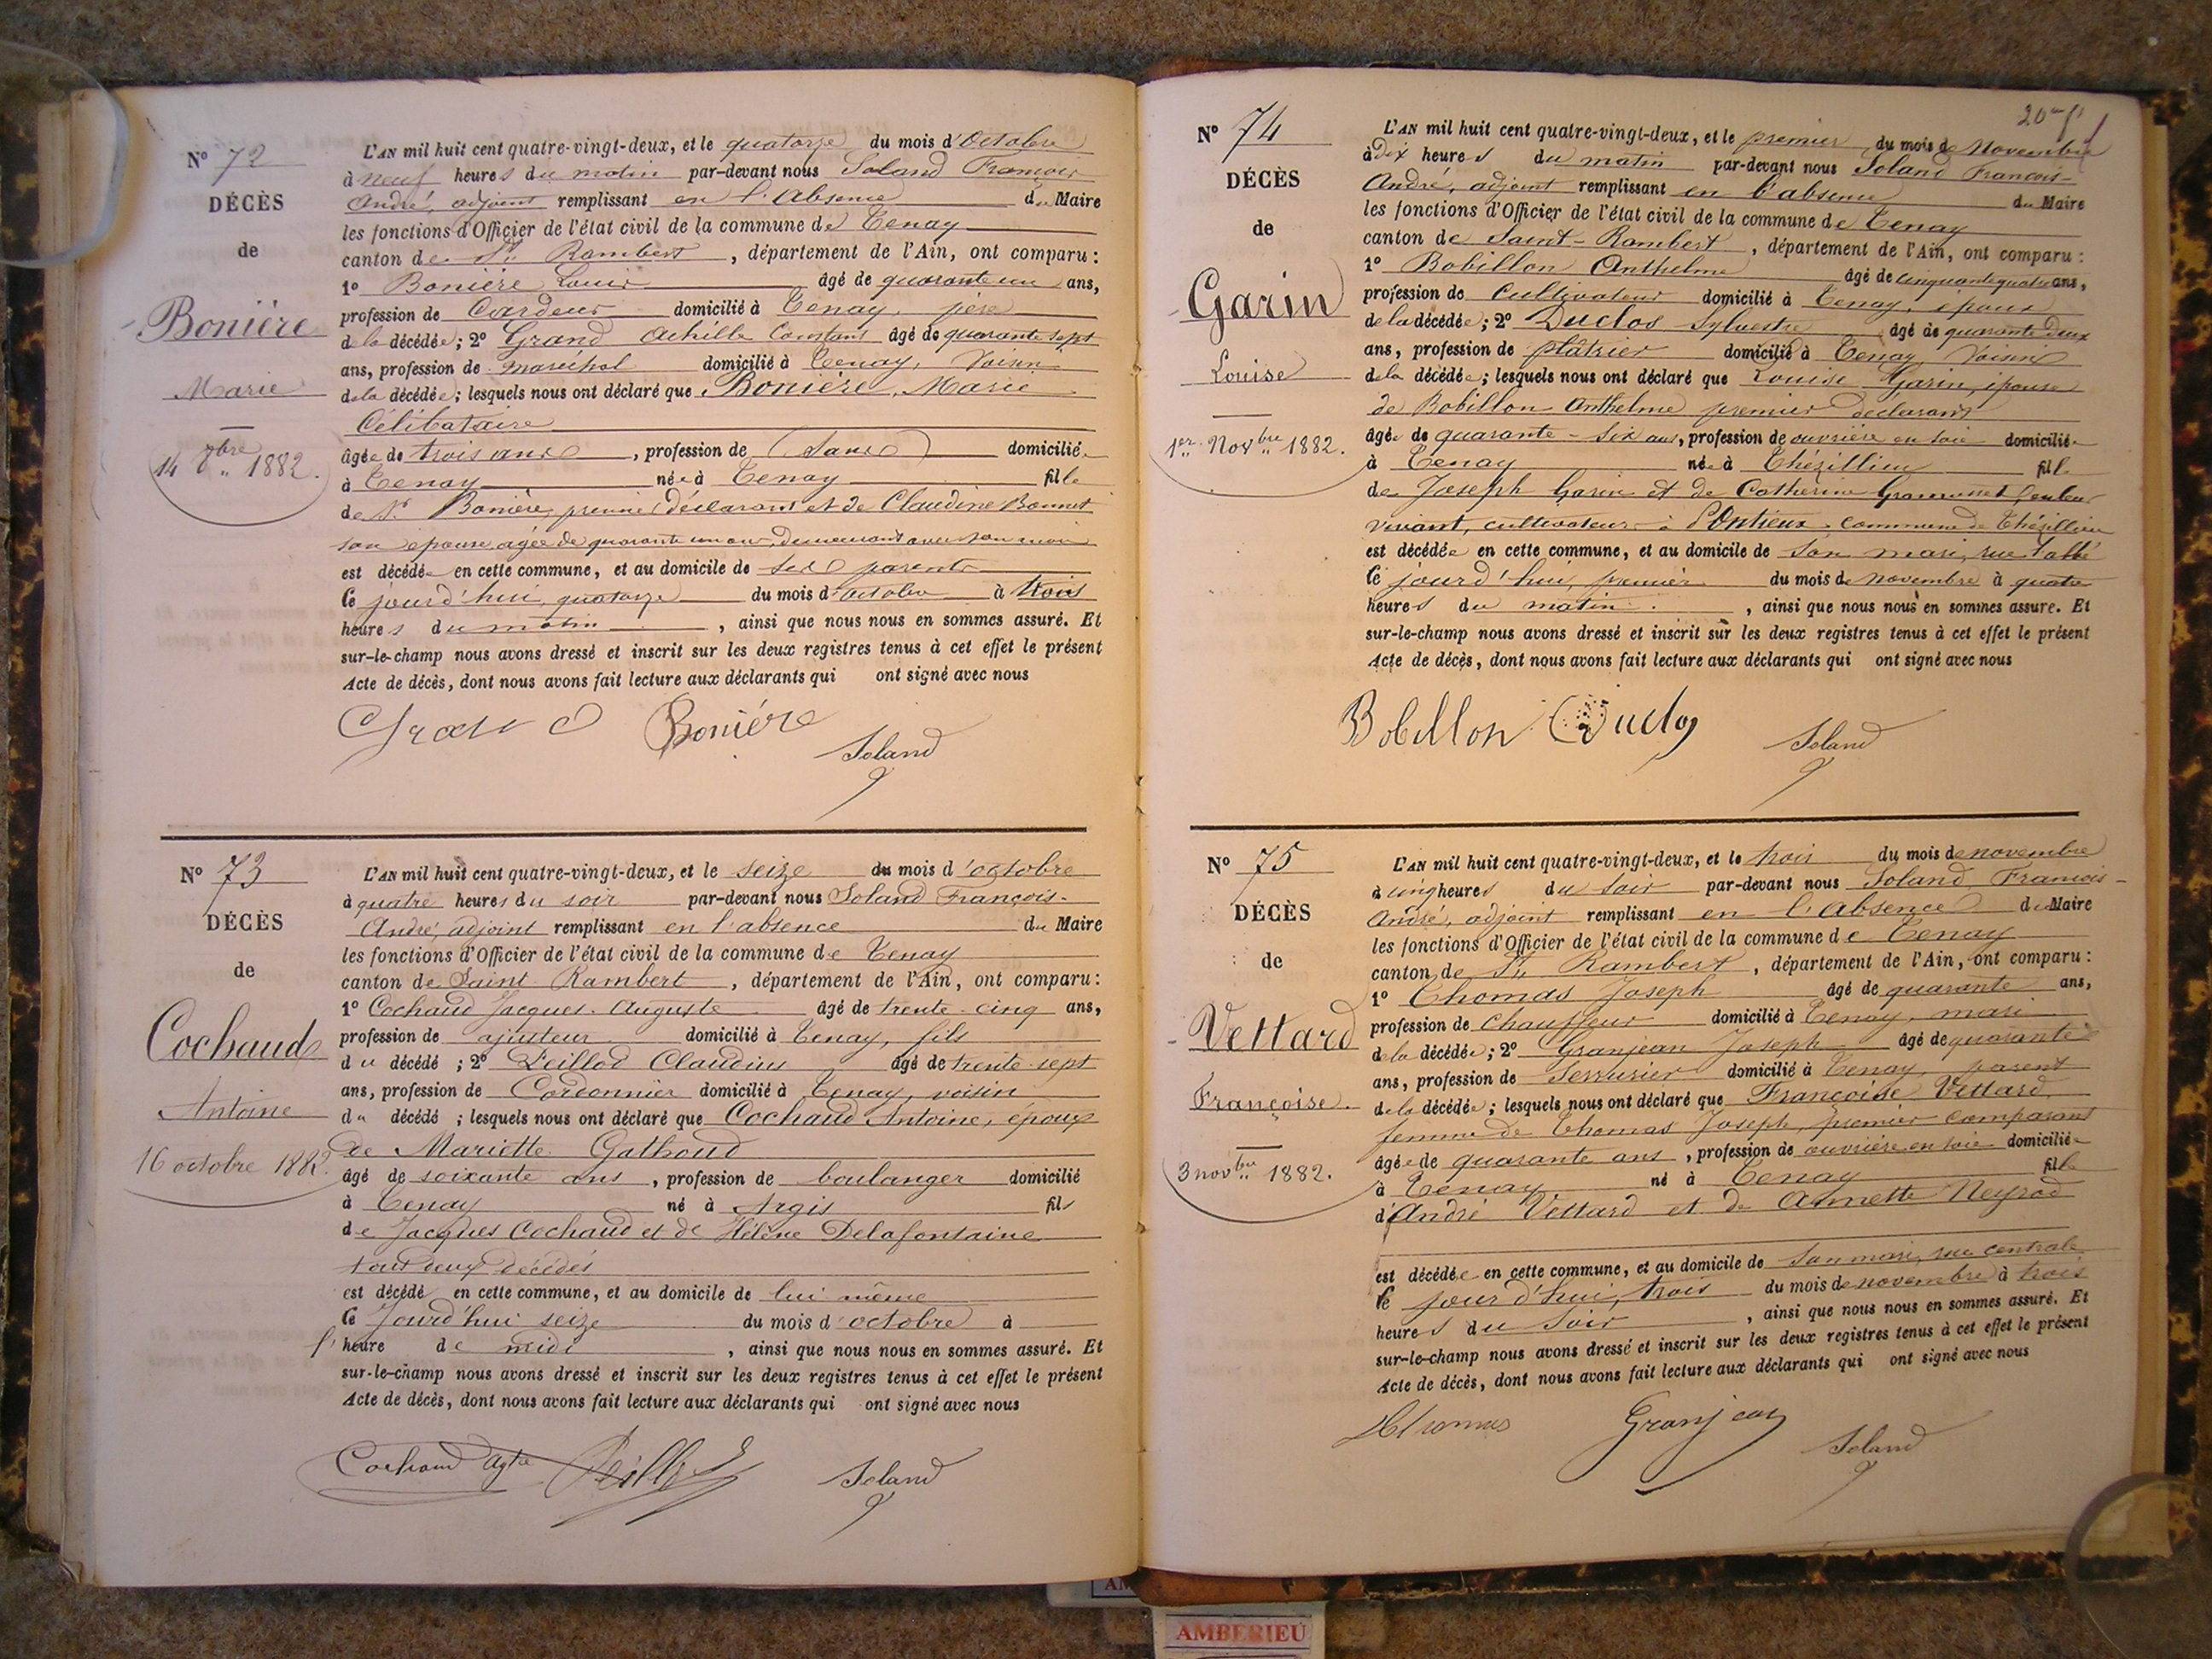 N° 72
DÉCÈS
de
Bonière
Marie
14 8bre 1882.
L'AN mil huit cent quatre-vingt-deux, et le quatorze du mois d'Octobre
à neuf heures du matin par-devant nous Soland François
André, adjoint remplissant en l'Absence du Maire
les fonctions d'Officier de l'état civil de la commune de Tenay
canton de St Rambert, département de l'Ain, ont comparu :
1° Bonière Louis âgé de quarante un ans,
profession de Cardeur domicilié à Tenay, père
de la décédée ; 2° Grand Achille Constant âgé de quarante sept
ans, profession de maréchal domicilié à Tenay, Voisin
de la décédée ; lesquels nous ont déclaré que Bonière, Marie
Célibataire
âgée de trois ans, profession de (sans) domiciliée
à Tenay née à Tenay fille
de Bonière, premier déclarant et de Claudine Bonnet
son épouse âgée de quarante un ans, demeurant avec son mari
est décédée en cette commune, et au domicile de ses parents
le jourd'hui, quatorze du mois d'octobre à trois
heures du matin, ainsi que nous nous en sommes assuré. Et
sur-le-champ nous avons dressé et inscrit sur les deux registres tenus à cet effet le présent
Acte de décès, dont nous avons fait lecture aux déclarants qui ont signé avec nous
Grand Bonière
Soland
N° 73
DÉCÈS
de
Cochaud
Antoine
16 octobre 1882.
L'AN mil huit cent quatre-vingt-deux, et le seize du mois d'octobre
à quatre heures du soir par-devant nous Soland François-
André, adjoint remplissant en l'absence du Maire
les fonctions d'Officier de l'état civil de la commune de Tenay
canton de Saint-Rambert, département de l'Ain, ont comparu :
1° Cochaud Jacques-Auguste âgé de trente-cinq ans,
profession de ajusteur domicilié à Tenay, fils
du décédé ; 2° Peillod Claudius âgé de trente-sept
ans, profession de Cordonnier domicilié à Tenay, voisin
du décédé ; lesquels nous ont déclaré que Cochaud Antoine, époux
de Mariette Gathoud
âgé de soixante ans, profession de boulanger domicilié
à Tenay né à Argis fils
de Jacques Cochaud et de Hélène Delafontaine
tout deux décédés
est décédé en cette commune, et au domicile de lui-même
le Jourd'hui seize du mois d'octobre à
l'heure de midi, ainsi que nous nous en sommes assuré. Et
sur-le-champ nous avons dressé et inscrit sur les deux registres tenus à cet effet le présent
Acte de décès, dont nous avons fait lecture aux déclarants qui ont signé avec nous
Cochaud Agte Peillod Soland
20
N° 74
DÉCÈS
de
Garin
Louise
1er Novbre 1882.
L'AN mil huit cent quatre-vingt-deux, et le premier du mois de Novembre
à dix heures du matin par-devant nous Soland François-
André, adjoint remplissant en l'absence du Maire
les fonctions d'Officier de l'état civil de la commune de Tenay
canton de Saint-Rambert, département de l'Ain, ont comparu :
1° Bobillon Anthelme âgé de cinquante quatre ans,
profession de Cultivateur domicilié à Tenay, époux
de la décédée ; 2° Duclos Sylvestre âgé de quarante deux
ans, profession de plâtrier domicilié à Tenay, Voisin
de la décédée ; lesquels nous ont déclaré que Louise Garin, épouse
de Bobillon Anthelme premier déclarant
âgée de quarante-six ans, profession de ouvrière en soie domiciliée
à Tenay née à Thézillieu fille
de Joseph Garin et de Catherine
vivant, cultivateur à Ponthieux commune de Thézillieu
est décédée en cette commune, et au domicile de son mari, rue
le jourd'hui, premier du mois de novembre à quatre
heures du matin, ainsi que nous nous en sommes assuré. Et
sur-le-champ nous avons dressé et inscrit sur les deux registres tenus à cet effet le présent
Acte de décès, dont nous avons fait lecture aux déclarants qui ont signé avec nous
Bobillon Duclos Soland
N° 75
DÉCÈS
de
Vettard
Françoise.
3 novbre 1882.
L'AN mil huit cent quatre-vingt-deux, et le trois du mois de novembre
à cinq heures du soir par-devant nous Soland François-
André, adjoint remplissant en l'Absence du Maire
les fonctions d'Officier de l'état civil de la commune de Tenay
canton de St Rambert, département de l'Ain, ont comparu :
1° Thomas Joseph âgé de quarante ans,
profession de Chauffeur domicilié à Tenay, mari
de la décédée ; 2° Granjean Joseph âgé de quarante
ans, profession de Serrurier domicilié à Tenay, parent
de la décédée ; lesquels nous ont déclaré que Françoise Vettard
femme de Thomas Joseph, premier comparant
âgée de quarante ans, profession de ouvrière en soie domiciliée
à Tenay né à Tenay fille
d'André Vettard et de Annette Neyrod
est décédée en cette commune, et au domicile de son mari, rue centrale
le jour d'hui, trois du mois de novembre à trois
heures du soir, ainsi que nous nous en sommes assuré. Et
sur-le-champ nous avons dressé et inscrit sur les deux registres tenus à cet effet le présent
Acte de décès, dont nous avons fait lecture aux déclarants qui ont signé avec nous
Thomas Granjean Soland
AMBERIEU